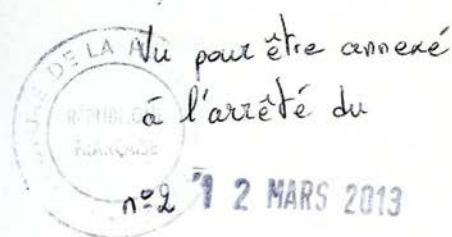 Vu pour être annexé
à l'arrêté du
n°2 12 MARS 2013
DE LA
RÉPUBLIQUE
FRANÇAISE